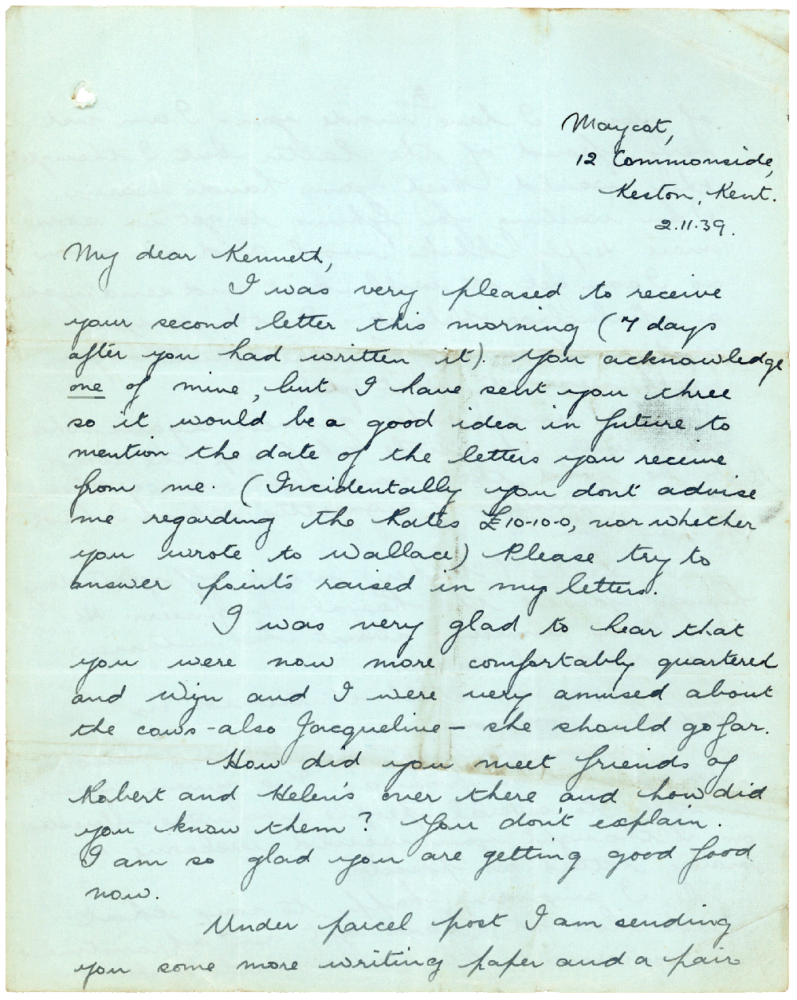 Maycot,
12 Commonside,
Keston, Kent.
2.11.39.
My dear Kenneth,
I was very pleased to receive
your second letter this morning (7 days
after you had written it). You acknowledge
one of mine, but I have sent you three
so it would be a good idea in future to
mention the date of the letters you receive
from me. (Incidentally you don't advise
me regarding the Rates £10-10-0, nor whether
you wrote to Wallace) Please try to
answer points raised in my letters.
I was very glad to hear that
you were now more comfortably quartered
and Wyn and I were very amused about
the cows - also Jacqueline - she should go far.
How did you meet friends of
Robert and Helen's over there and how did
you know them? You don't explain.
I am so glad you are getting good food
now.
Under parcel post I am sending
you some more writing paper and a pair